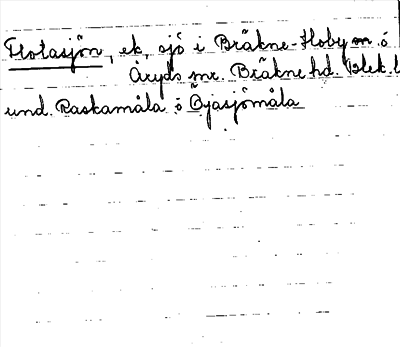 Flotasjön, ek, sjö i Bräkne-Hoby sn. ö
Åryds sn. Bräkne hd. Blek. l
und. Raskamåla ö Öjasjömåla